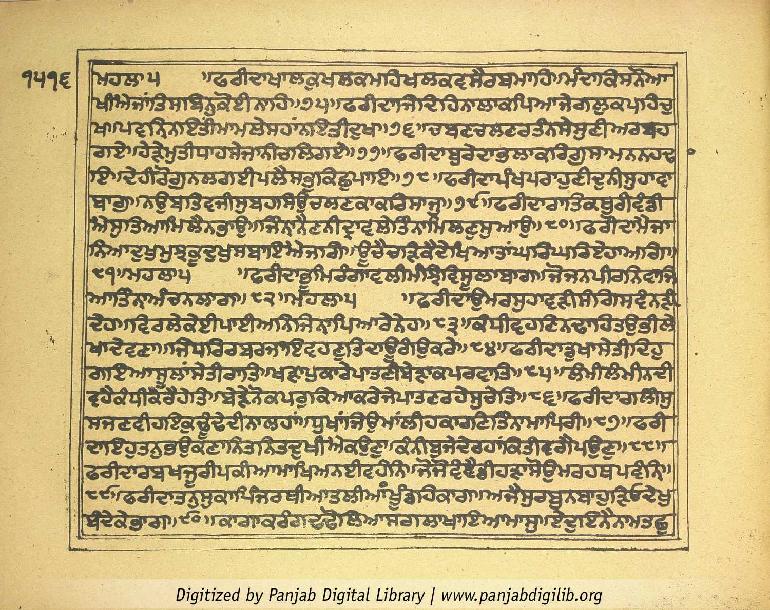 ੧੫੧੬
ਮਹਲਾ ੫ ॥ਫਰੀਦਾਖਾਲਕੁਖਲਕਮਹਿਖਲਕਵਸੈਰਬਮਾਹਿ॥ਮੰਦਾਕਿਸਨੋਆ
ਖੀਐਜਾਂਤਿਸੁਬਿਨੁਕੋਈਨਾਹਿ॥੭੫॥ਫਰੀਦਾਜੇਦਿਹਿਨਾਲਾਕਪਿਆਜੇਗਲੁਕਪਹਿਚੁ
ਖ॥ਪਵਨਿਨਇਤੀਮਾਮਲੇਸਹਾਂਨਇਤੀਦੁਖ॥੭੬॥ਚਬਣਚਲਣਰਤੰਨਸੇਸੁਣੀਅਰਬਹਿ
ਗਏ॥ਹੇੜੇਮੁਤੀਧਾਹਸੇਜਾਨੀਚਲਿਗਏ॥੭੭॥ਫਰੀਦਾਬੁਰੇਦਾਭਲਾਕਰਿਗੁਸਾਮਨਿਨਹਢ
ਾਇ॥ਦੇਹੀਰੋਗੁਨਲਗਈਪਲੈਸਭੁਕਿਛੁਪਾਇ॥੭੮॥ਫਰੀਦਾਪੰਖਪਰਾਹੁਣੀਦੁਨੀਸੁਹਾਵਾ
ਬਾਗੁ॥ਨਉਬਤਿਵਜੀਸੁਬਹਸਿਉਚਲਣਕਾਕਰਿਸਾਜੁ॥੭੯॥ਫਰੀਦਾਰਾਤਿਕਥੂਰੀਵੰਡੀ
ਐਸੁਤਿਆਮਿਲੈਨਭਾਉ॥ਜਿੰਨਾਨੈਣਨੀਂਦ੍ਰਾਵਲੇਤਿੰਨਾਮਿਲਣੁਕੁਆਉ॥੮੦॥ਫਰੀਦਾਮੈਜਾ
ਨਿਆਦੁਖੁਮੁਝਕੂਦੁਖੁਸਬਾਇਐਜਗਿ॥ਊਚੈਚੜਿਕੈਦੇਖਿਆਤਾਂਘਰਿਘਰਿਏਹਾਅਗਿ॥
੮੧॥ਮਹਲਾ੫ ॥ਫਰੀਦਾਭੂਮਿਰੰਗਾਵਲੀਮੰਝਿਵਿਸੂਲਾਬਾਗ॥ਜੋਜਨਪੀਰਨਿਵਾਜਿ
ਆਤਿੰਨਾਅੰਚਨਲਾਗ॥੮੨॥ਮਹਲਾ੫ ॥ਫਰੀਦਾਉਮਰਸੁਹਾਵੜੀਸੰਗਿਸੁਵੰਨੜੀ
ਦੇਹ॥ਵਿਰਲੇਕੇਈਪਾਈਅਨਿਜਿੰਨਾਪਿਆਰੇਨੇਹ॥੮੩॥ਕੰਧੀਵਹਣਨਢਾਹਿਤਉਭੀਲੇ
ਖਾਦੇਵਣਾ॥ਜਿਧਰਿਰਬਰਜਾਇਵਹਣੁਤਿਦਾਊਗੰਉਕਰੇ॥੮੪॥ਫਰੀਦਾਡੁਖਾਸੇਤੀਦਿਹੁ
ਗਇਆਸੂਲਾਂਸੇਤੀਰਾਤਿ॥ਖੜਾਪੁਕਾਰੇਪਾਤਣੀਬੇੜਾਕਪਰਵਾਤਿ॥੮੫॥ਲੰਮੀਲੰਮੀਨਦੀ
ਵਹੈਕੰਧੀਕੇਰੈਹੇਤਿ॥ਬੇੜੇਨੋਕਪਰੁਕਿਆਕਰੇਜੇਪਾਤਣਰਹੈਸੁਚੇਤਿ॥੮੬॥ਫਰੀਦਾਗਲੀਸੁ
ਸਜਣਵੀਹਇਕੁਢੂੰਢੇਦੀਨਲਹਾਂ॥ਧੁਖਾਂਜਿਉਮਾਂਲੀਹਕਾਰਣਿਤਿੰਨਾਮਾਪਿਰੀ॥੮੭॥ਫਰੀ
ਦਾਇਹੁਤਨੁਭਉਕਣਾਨਿਤਨਿਤਦੁਖੀਐਕਉਣੁ॥ਕੰਨੀਬੁਜੇਦੇਰਹਾਂਕਿਤੀਵਗੈਪਉਣੁ॥੮੮॥
ਫਰੀਦਾਰਬਖਜੂਰੀਪਕੀਆਮਾਖਿਅਨਈਵਹੰਨਿ॥ਜੋਜੋਵੰਞੈਡੀਹੜਾਸੋਉਮਰਹਥਪਵੰਨਿ॥
੮੯॥ਫਰੀਦਾਤਨੁਸੁਕਾਪਿੰਜਰੁਥੀਆਤਲੀਆਂਖੂੰਡਹਿਕਾਗ॥ਅਜੈਸੁਰਬੁਨਬਾਹੁੜਿਓਦੇਖੁ
ਬੰਦੇਕੇਭਾਗ॥੯੦॥ਕਾਗਾਕਰੰਗਢਢੋਲਿਆਸਗਲਾਖਾਇਆਮਾਸੁ॥ਏਦੁਇਨੈਨਾਮਤਛੁ
Digitized by Panjab Digital Library | www.panjabdigilib.org